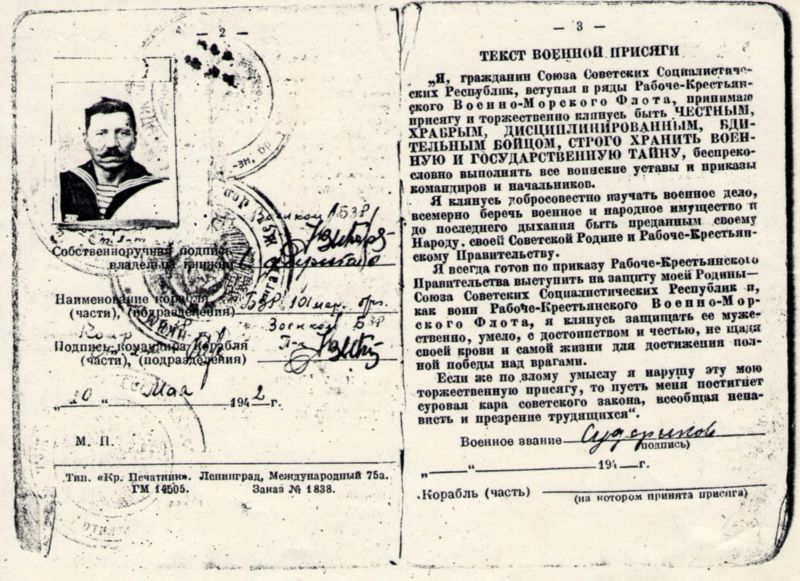 — 2 —
Собственноручная подпись
владельца книжки
Наименование корабля
(части), (подразделения)
Подпись командира корабля
(части), (подразделения)
„10“ Мая 1942 г.
М. П.
Тип. «Кр. Печатник». Ленинград, Международный 75а.
ГМ 14505. Заказ № 1838.
— 3 —
ТЕКСТ ВОЕННОЙ ПРИСЯГИ
„Я, гражданин Союза Советских Социалистиче-
ских Республик, вступая в ряды Рабоче-Крестьян-
ского Военно-Морского Флота, принимаю
присягу и торжественно клянусь быть ЧЕСТНЫМ,
ХРАБРЫМ, ДИСЦИПЛИНИРОВАННЫМ, БДИ-
ТЕЛЬНЫМ БОЙЦОМ, СТРОГО ХРАНИТЬ ВОЕН-
НУЮ И ГОСУДАРСТВЕННУЮ ТАЙНУ, беспреко-
словно выполнять все воинские уставы и приказы
командиров и начальников.
Я клянусь добросовестно изучать военное дело,
всемерно беречь военное и народное имущество и
до последнего дыхания быть преданным своему
Народу, своей Советской Родине и Рабоче-Крестьян-
скому Правительству.
Я всегда готов по приказу Рабоче-Крестьянского
Правительства выступить на защиту моей Родины—
Союза Советских Социалистических Республик и,
как воин Рабоче-Крестьянского Военно-Мор-
ского Флота, я клянусь защищать ее муже-
ственно, умело, с достоинством и честью, не щадя
своей крови и самой жизни для достижения пол-
ной победы над врагами.
Если же по злому умыслу я нарушу эту мою
торжественную присягу, то пусть меня постигнет
суровая кара советского закона, всеобщая нена-
висть и презрение трудящихся“.
Военное звание
(подпись)
„ “ 194 г.
Корабль (часть)
(на котором принята присяга)